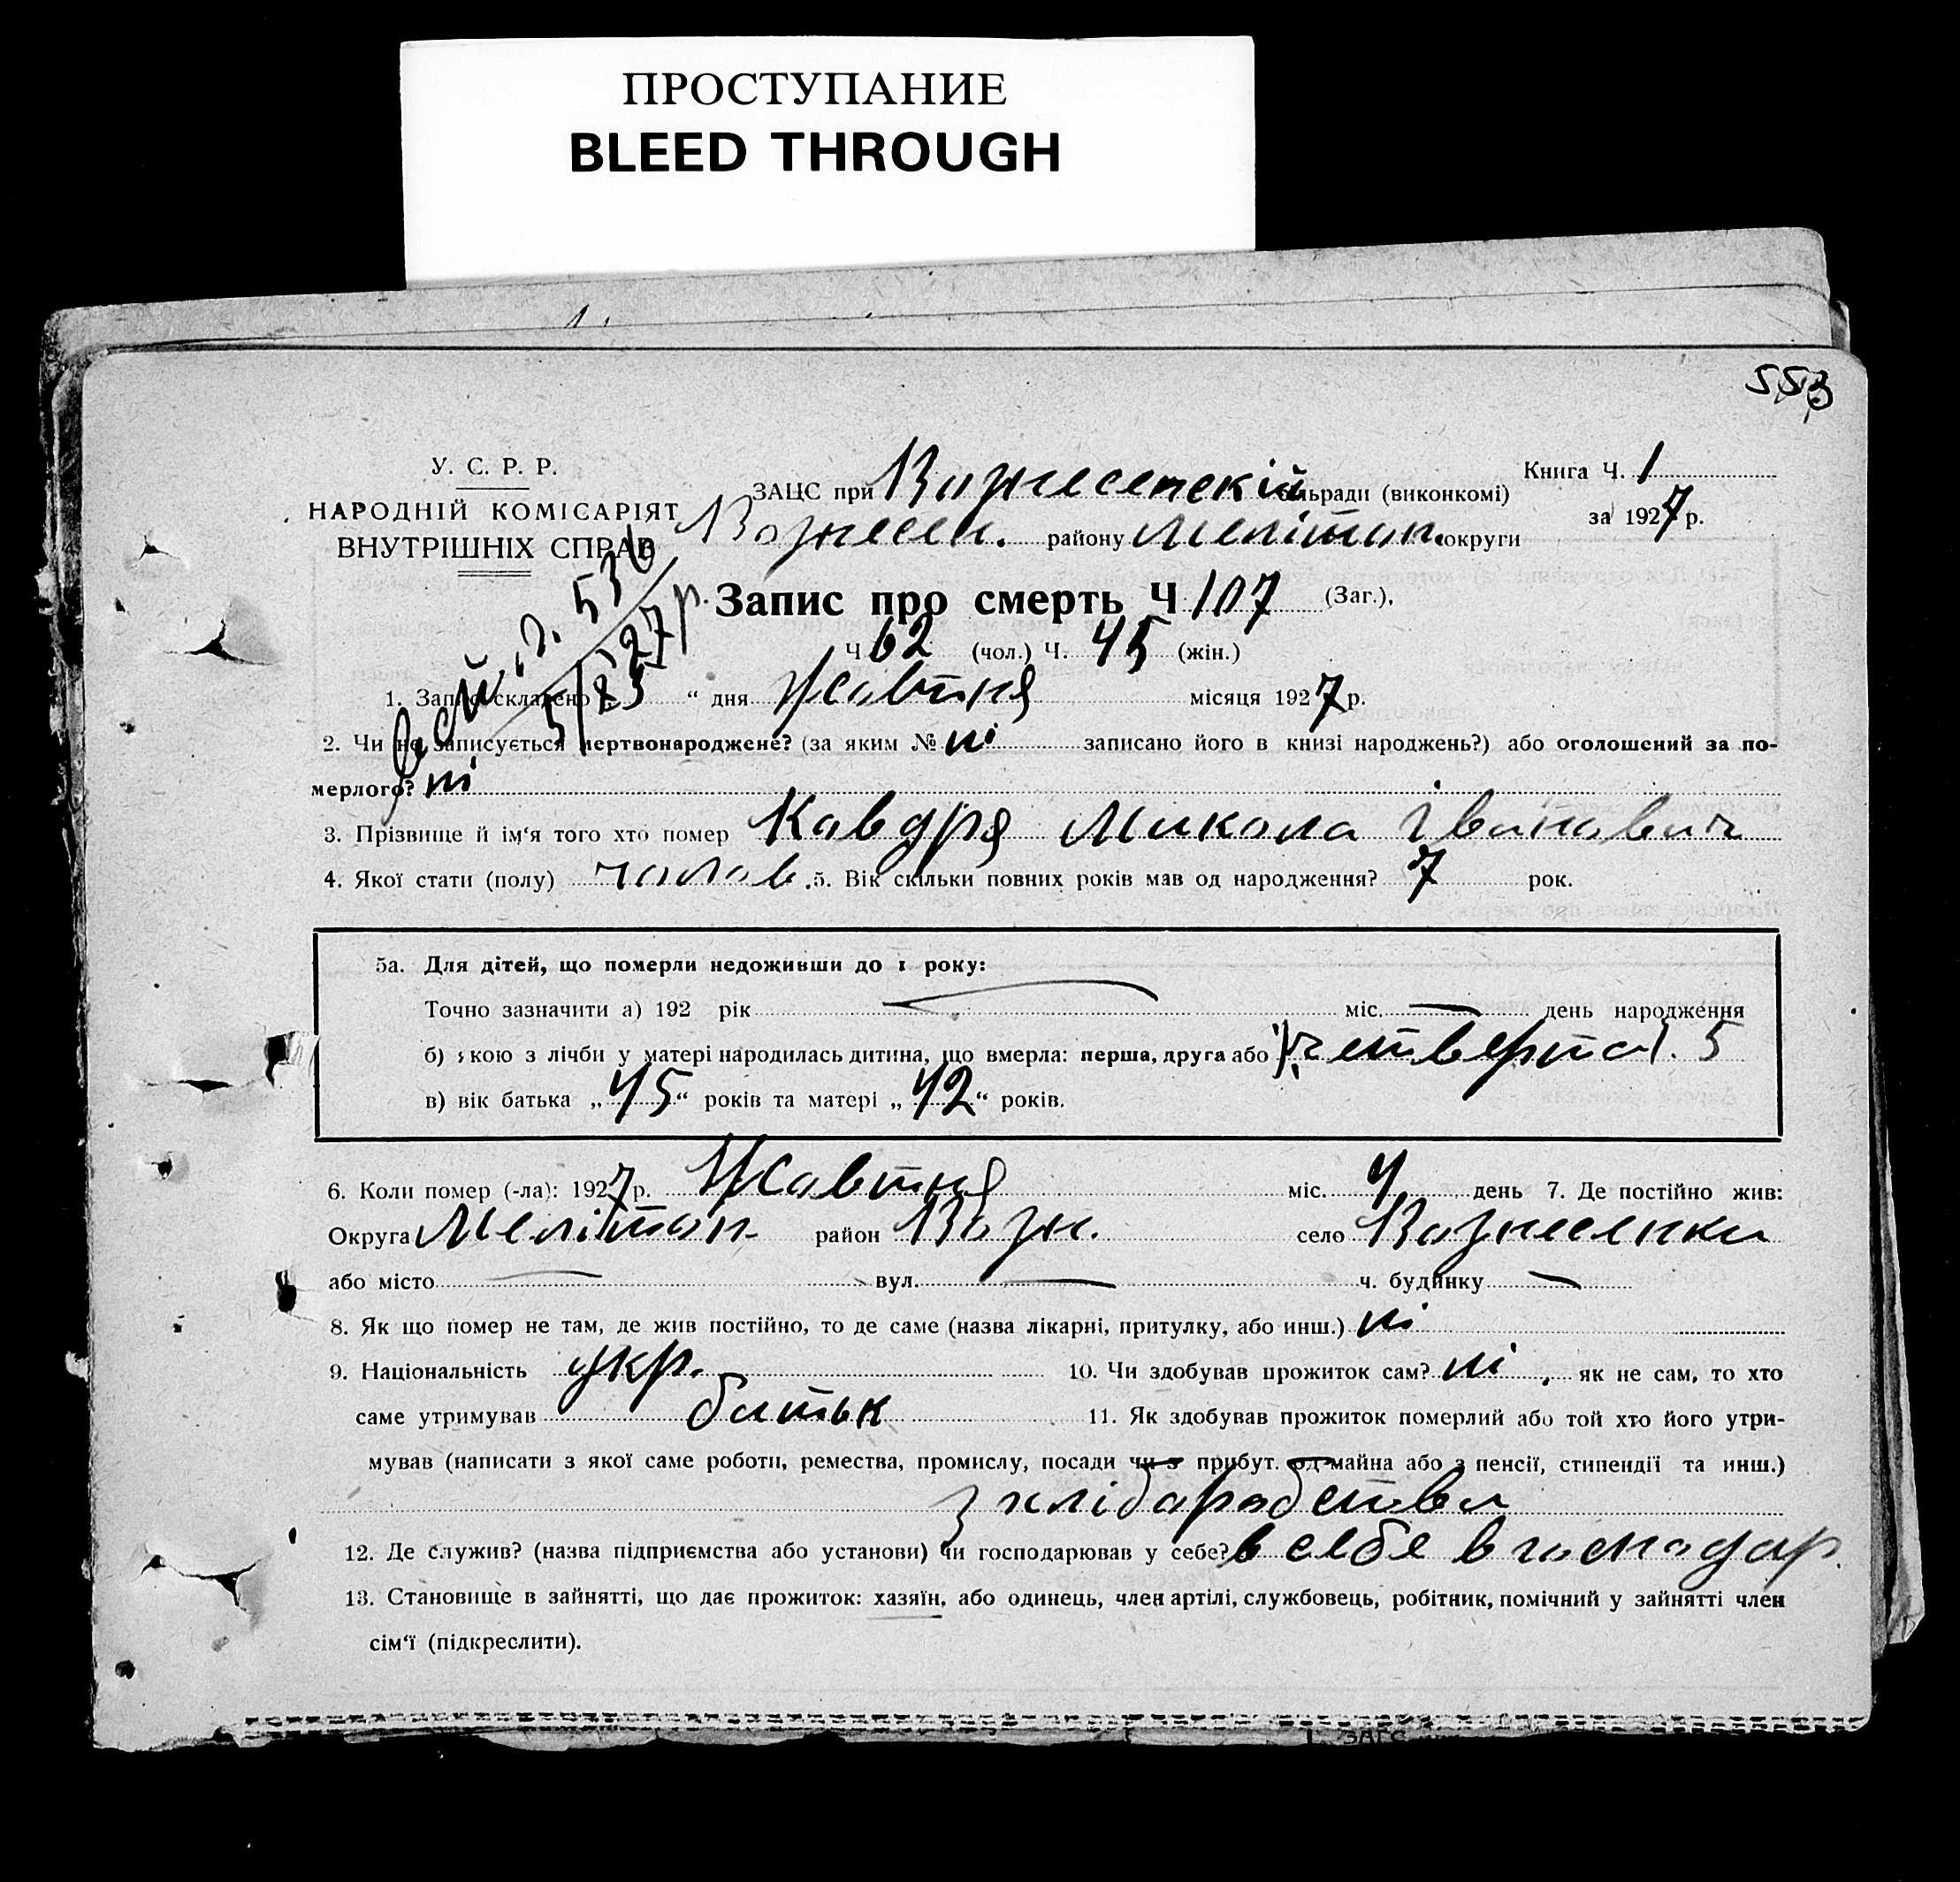 ПРОСТУПАНИЕ
BLEED THROUGH
553
У. С. Р. Р.
НАРОДНІЙ КОМІСАРІЯТ
ВНУТРІШНІХ СПРАВ
ЗАЦС при Вознесенскій сільради (виконкомі)
Книга Ч. 1
Вознесен. району Мелітоп. округи
за 1927 р.
Запис про смерть Ч 107 (Заг.),
Ч 62 (чол.) Ч. 45 (жін.)
1. Запис складено 5 " дня Жовтня місяця 1927 р.
2. Чи не записується мертвонароджене? (за яким № ні записано його в книзі народжень?) або оголошений за по-
мерлого? ні
3. Прізвище й ім'я того хто помер Кавдря Микола Іванович
4. Якої стати (полу) чолов. 5. Вік скільки повних років мав од народження? 7 рок.
5а. Для дітей, що померли недоживши до 1 року:
Точно зазначити а) 192 рік — міс. — день народження
б) якою з лічби у матері народилась дитина, що вмерла: перша, друга або четверта 5
в) вік батька „45“ років та матері „42“ років.
6. Коли помер (-ла): 1927 р. Жовтня міс. 4 день 7. Де постійно жив:
Округа Мелітоп район Возн. село Вознесенки
або місто — вул. — ч. будинку —
8. Як що помер не там, де жив постійно, то де саме (назва лікарні, притулку, або инш.) ні
9. Національність укр. 10. Чи здобував прожиток сам? ні, як не сам, то хто
саме утримував батьк 11. Як здобував прожиток померлий або той хто його утри-
мував (написати з якої саме роботи, ремества, промислу, посади чи з прибут. од майна або з пенсії, стипендії та инш.)
з хліборобства
12. Де служив? (назва підприємства або установи) чи господарював у себе? в себе в господар.
13. Становище в зайнятті, що дає прожиток: хазяїн, або одинець, член артілі, службовець, робітник, помічний у зайнятті член
сім'ї (підкреслити).